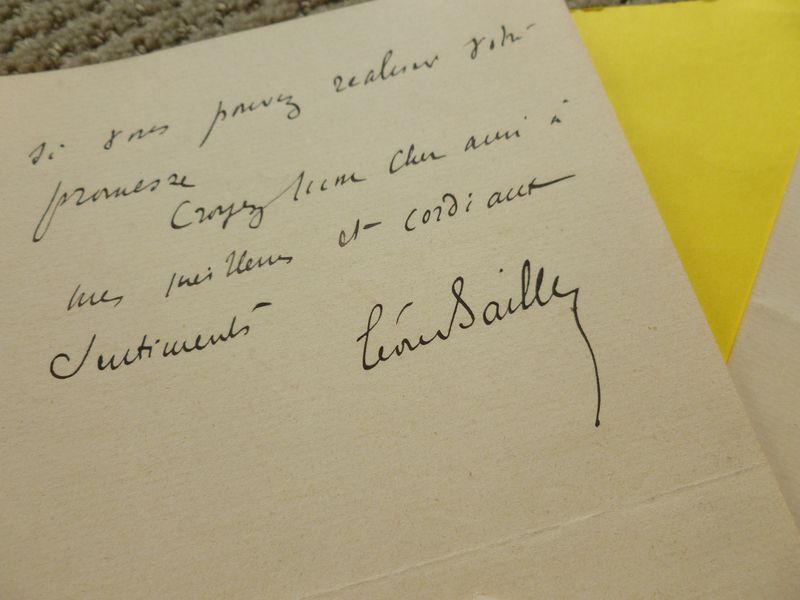 si vous pouvez realiser votre
promesse
Croyez mon cher ami à
mes meilleurs et cordiaux
Sentiments
Léon Bailly